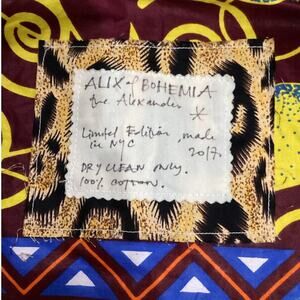 ALIX of BOHEMIA
the Alexander *
Limited Edition, made
in NYC 2017.
DRY CLEAN ONLY.
100% COTTON.